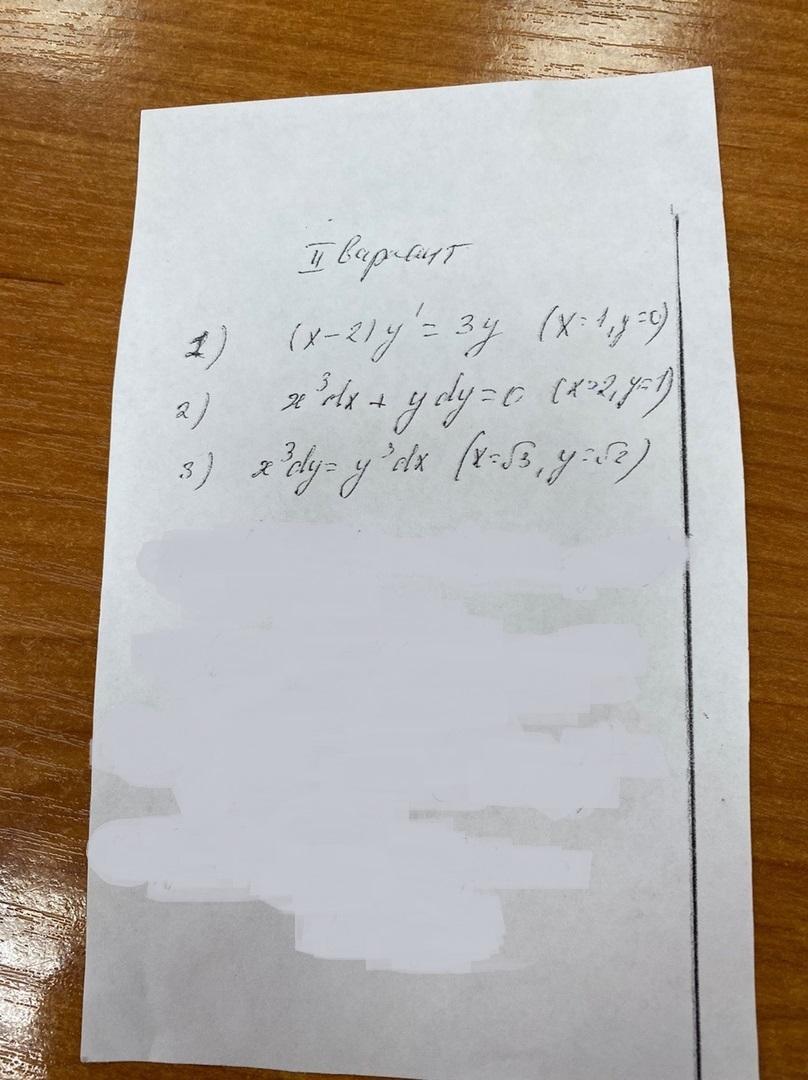 II вариант
1) (x-2)y' = 3y (x=1, y=0)
2) x³dx + y dy = 0 (x=2, y=1)
3) x³dy = y³dx (x=√3, y=√2)